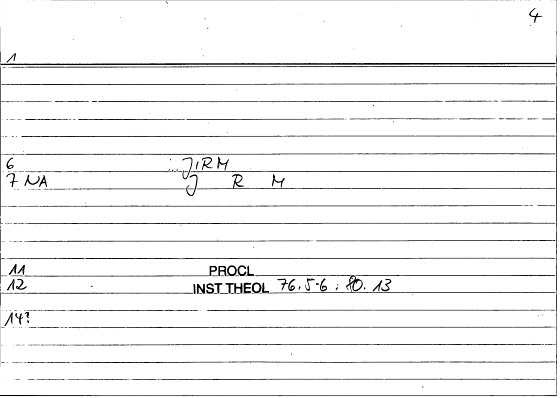 4
1
6 ...JIRM
7 NA J R M
11 PROCL
12 INST THEOL 76.5-6 : 80.13
14?